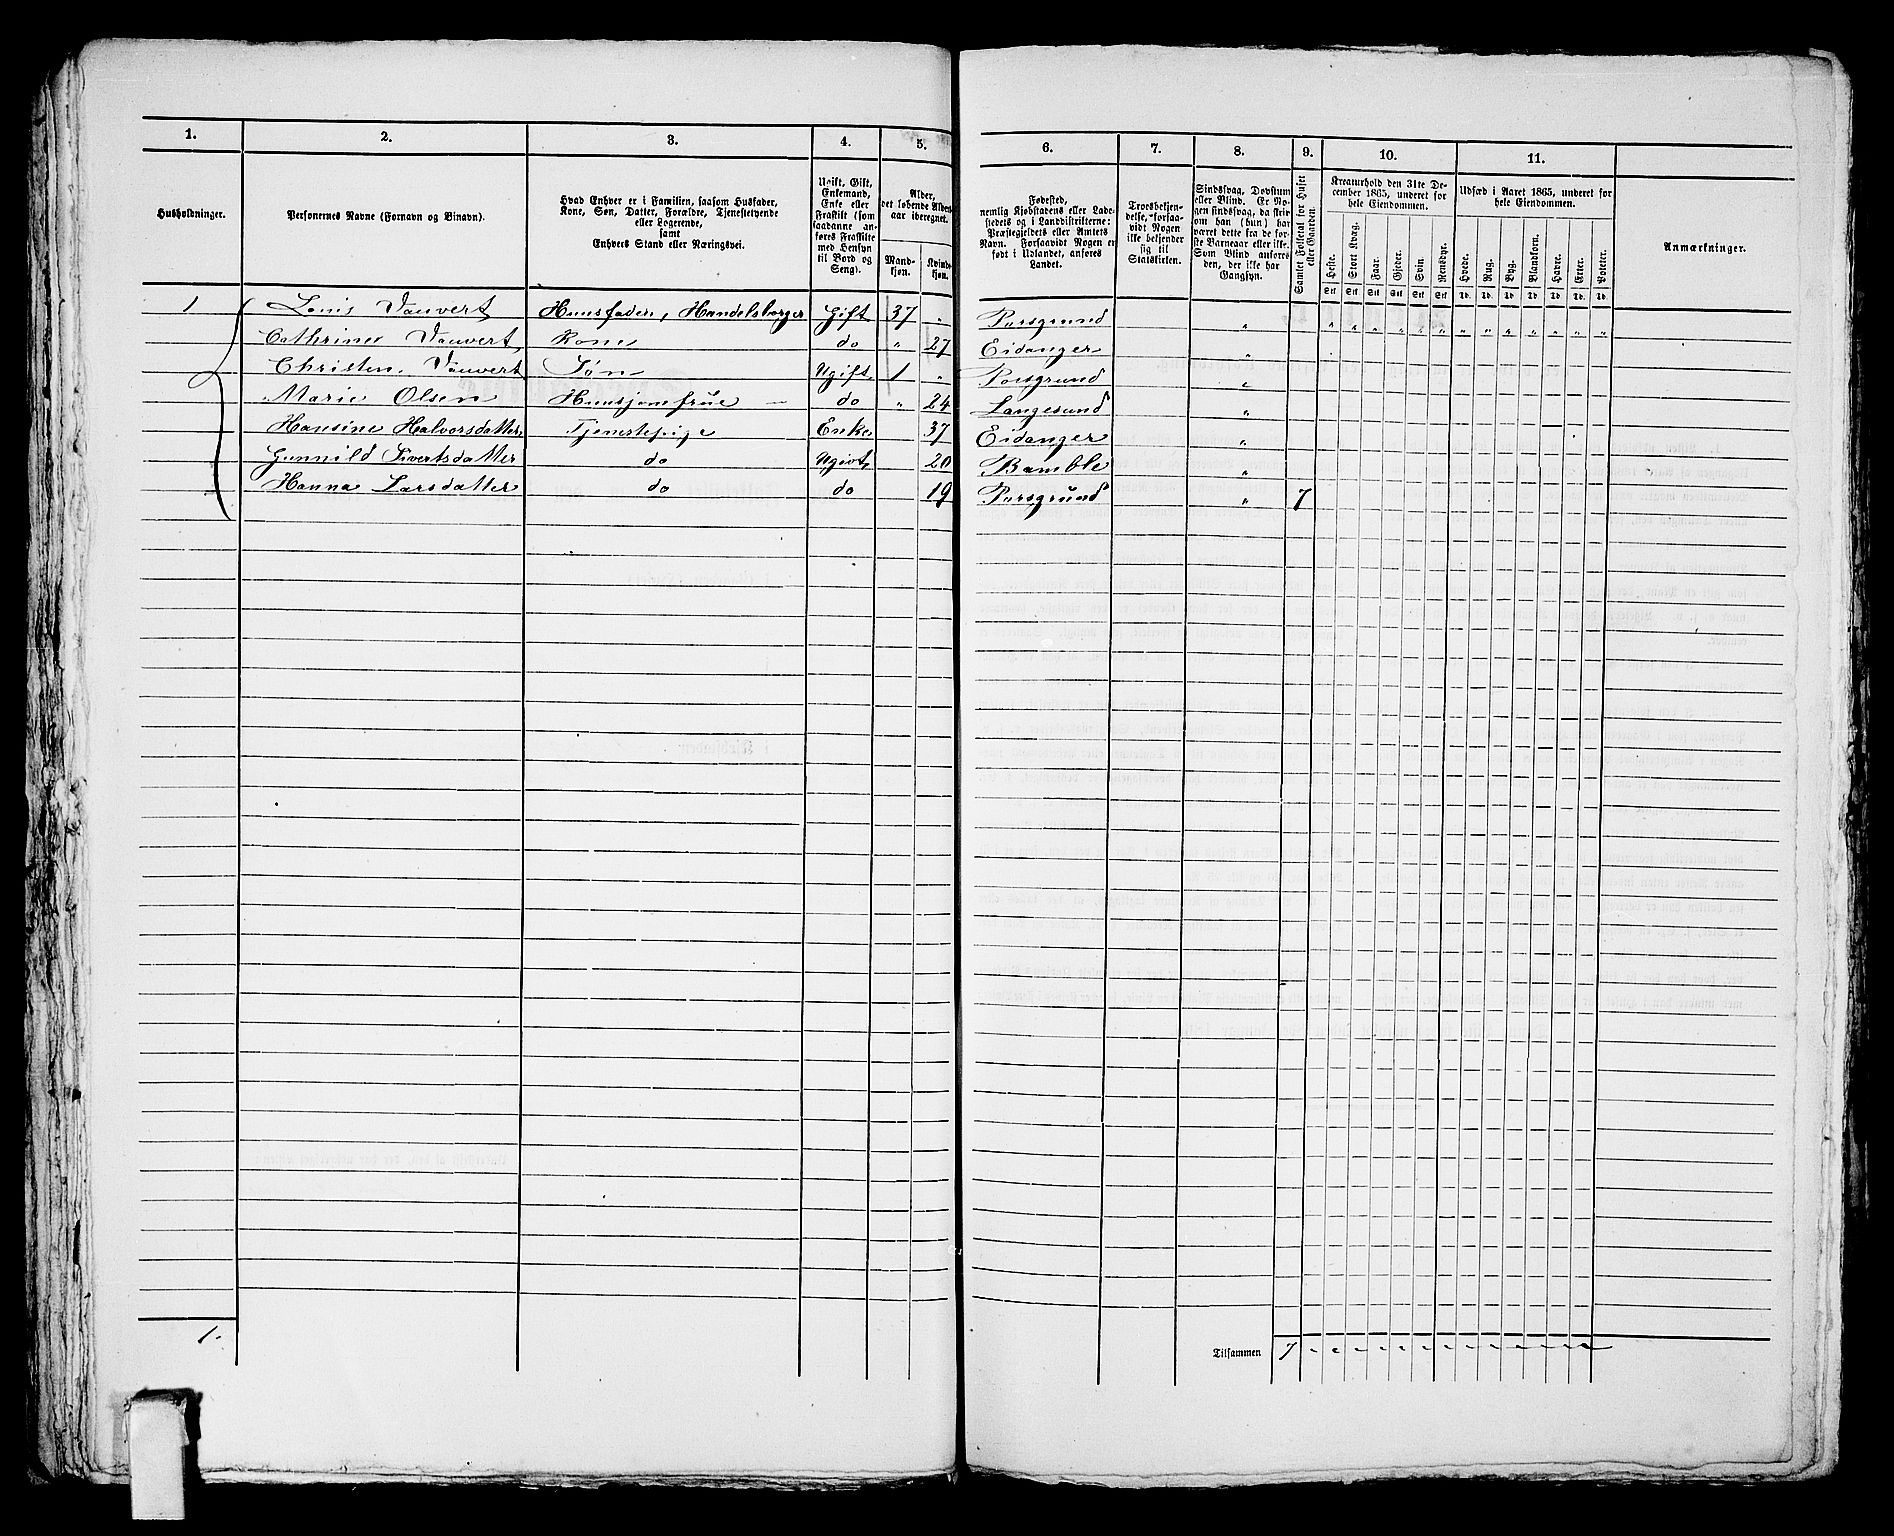 1. 2. 3. 4. 5. 6. 7. 8. 9. 10. 11.
Husholdninger.
Personernes Navne (Fornavn og Binavn).
Hvad Enhver er i Familien, saasom Husfader,
Kone, Søn, Datter, Forældre, Tjenestetyende
eller Logerende,
samt
Enhvers Stand eller Næringsvei.
Ugift, Gift,
Enkemand,
Enke eller
Fraskilt (som
saadanne an-
føres Fraskilte
med Hensyn
til Bord og
Seng).
Alder,
det løbende Alders-
aar iberegnet.
Mand-
kjøn.
Kvinde-
kjøn.
Fødested,
nemlig Kjøbstadens eller Lade-
stedets og i Landdistrikterne:
Præstegjeldets eller Amtets
Navn. Forsaavidt Nogen er
født i Udlandet, anføres
Landet.
Troesbekjen-
delse, forsaa-
vidt Nogen
ikke bekjender
sig til
Statskirken.
Sindssvag, Døvstum
eller Blind. Er No-
gen sindssvag, da skriv
om han (hun) har
været dette fra de før-
ste Barneaar eller ikke.
Som Blind anføres
den, der ikke har
Gangsyn.
Samlet Folketal for Huset
eller Gaarden.
Kreaturhold den 31te De-
cember 1865, underet for
hele Eiendommen.
Heste. Stort Kvæg. Faar. Gjeder. Svin. Rensdyr.
Stk Stk Stk Stk Stk Stk
Udsæd i Aaret 1865, underet for
hele Eiendommen.
Hvede. Rug. Byg. Blandkorn. Havre. Erter. Poteter.
Td. Td. Td. Td. Td. Td. Td.
Anmærkninger.
1 Louis Vauvert Huusfader, Handelsborger Gift 37 " Porsgrund " " " " " " " " " " " " " "
Cathrine Vauvert Kone do " 27 Eidanger "
Christen Vauvert Søn Ugift 1 " Porsgrund "
Marie Olsen Huusjomfrue - do " 24 Langesund "
Hansine Halvorsdatter Tjenestepige Enke 37 Eidanger "
Gunnild Sivertsdatter do Ugivt 20 Bamble "
Hanna Larsdatter do do 19 Porsgrund " 7
1.
Tilsammen 7 " " " " " " " " " " " " "